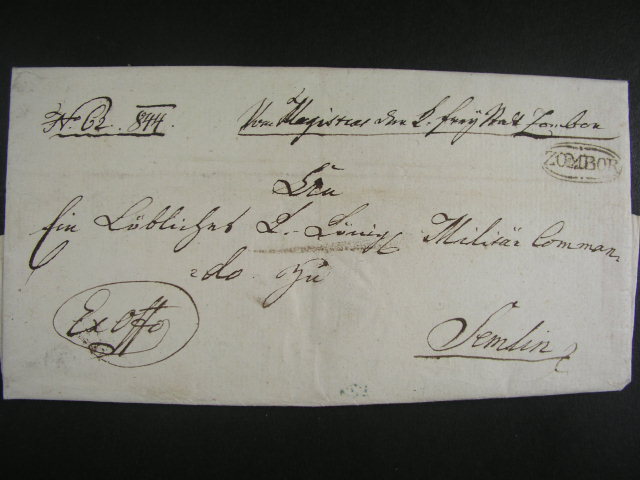 No 62. 844. Vom Magistrat der k. frey Stadt Zombor
ZOMBOR
An
Ein Löbliches k. königl Militär Comman,
=do zu
Ex offo
Semlin